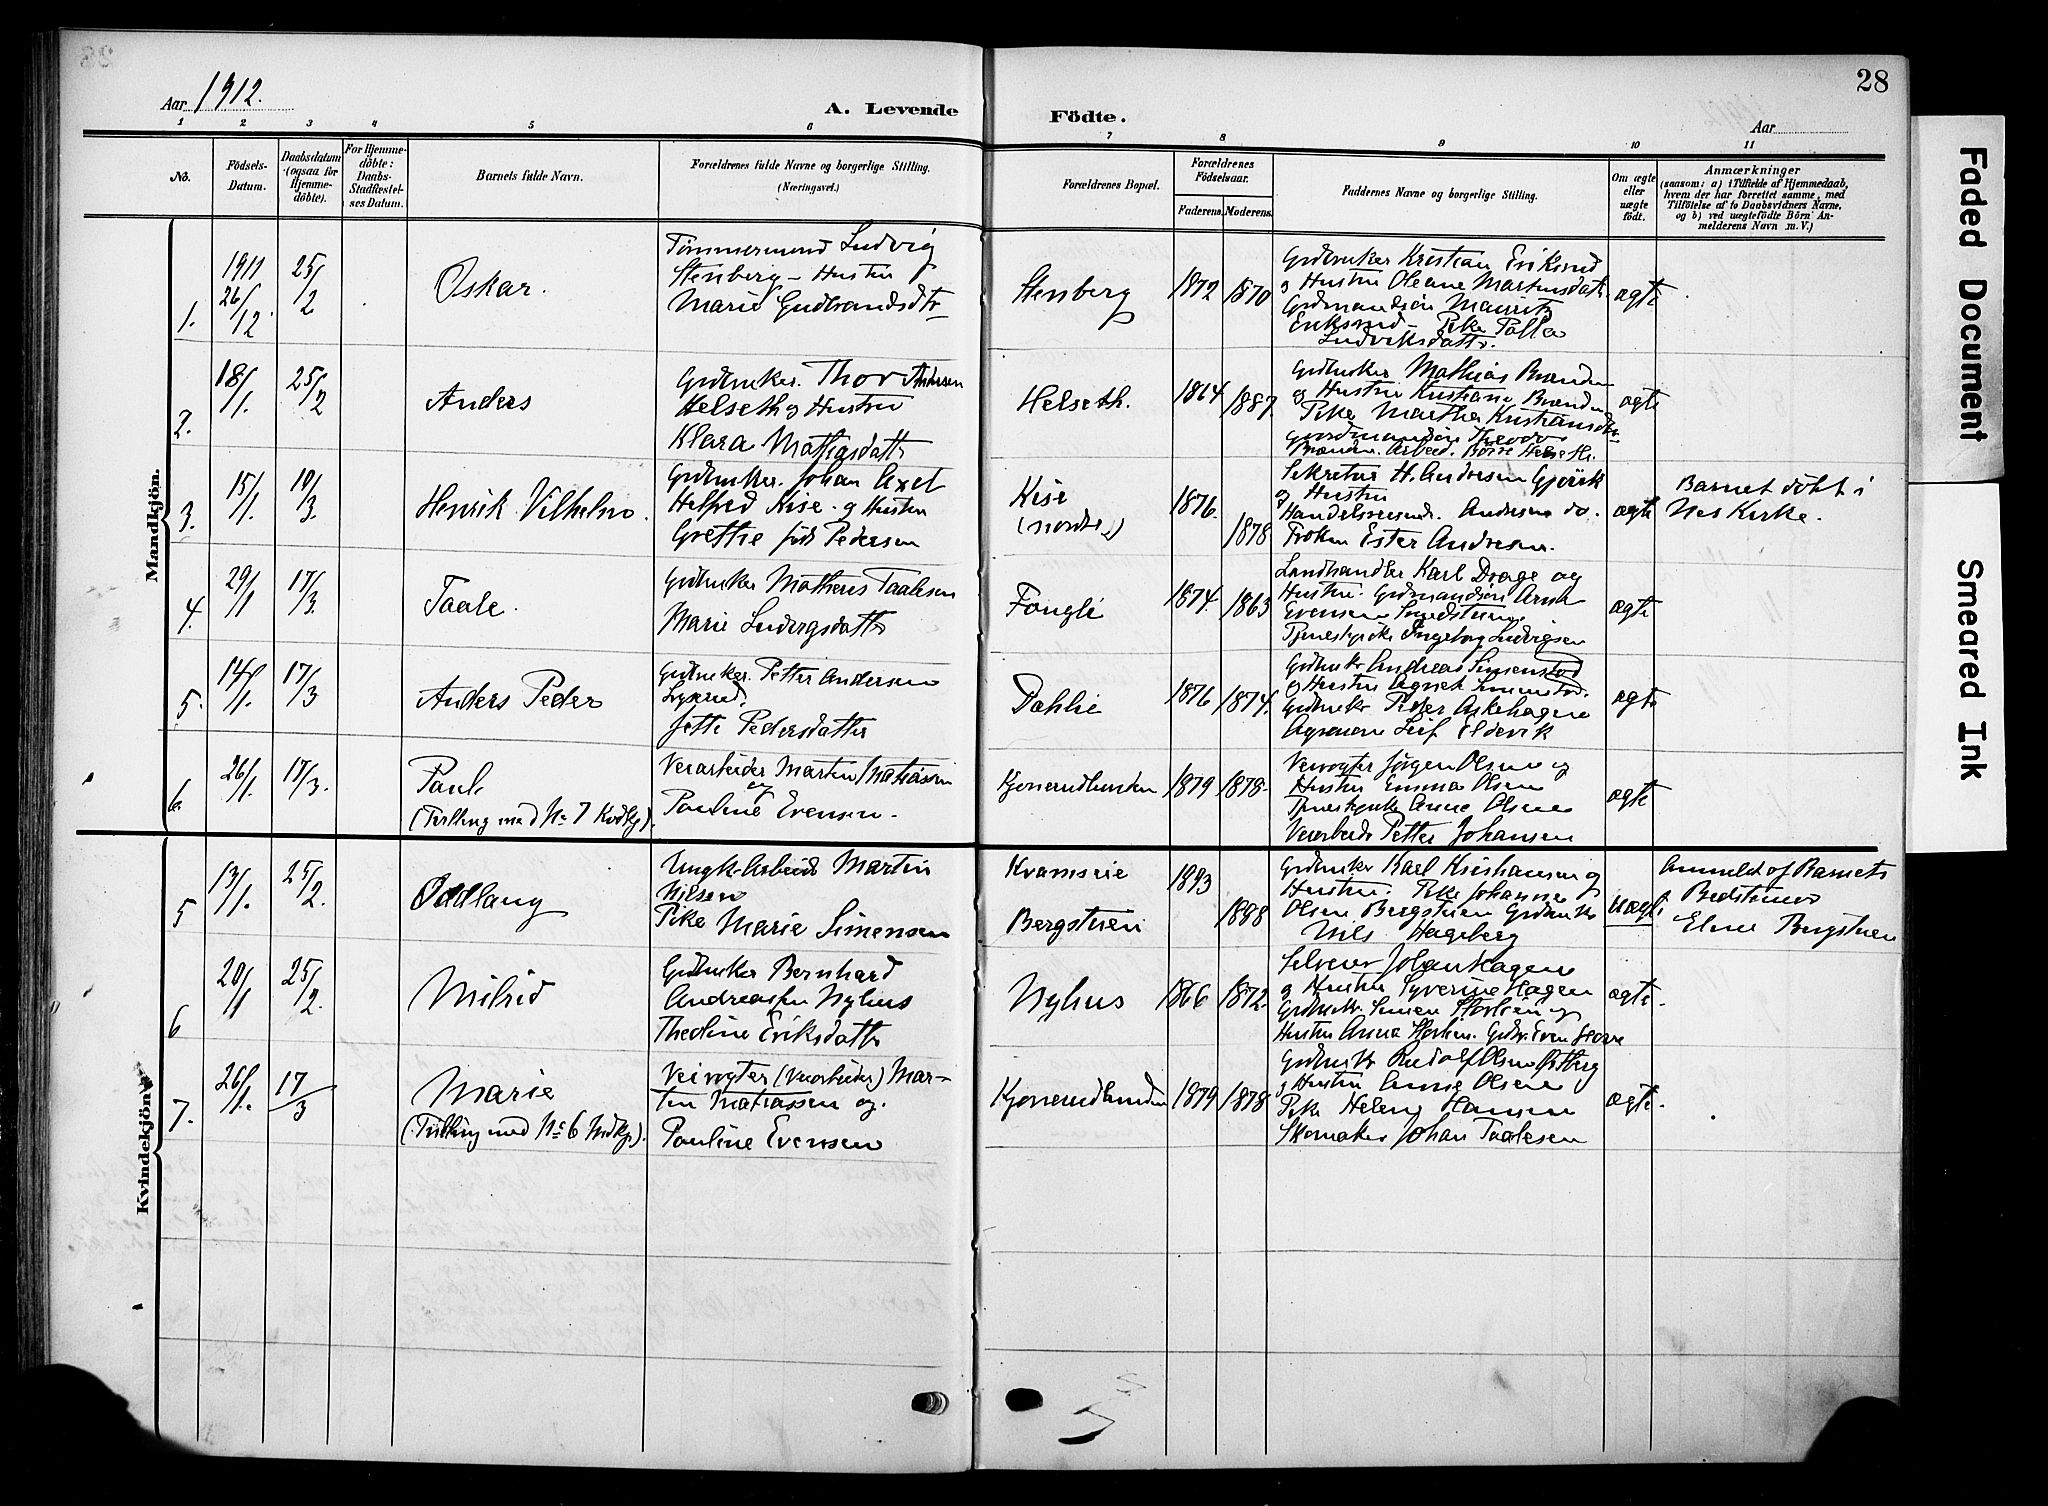 28
Aar 1912.
A. Levende Födte.
Aar
1 2 3 4 5 6 7 8 9 10 11
No.
Födsels-
Datum.
Daabsdatum
(ogsaa for
Hjemme-
döbte).
For Hjemme-
döbte:
Daabs-
Stadfæstel-
ses Datum.
Barnets fulde Navn.
Forældrenes fulde Navne og borgerlige Stilling.
(Næringsvei.)
Forældrenes Bopæl.
Forældrenes
Födselsaar.
Faderens. Moderens.
Faddernes Navne og borgerlige Stilling.
Om ægte
eller
uægte
födt.
Anmærkninger
(saasom: a) i Tilfælde af Hjemmedaab,
hvem der har forrettet samme, med
Tilföielse af to Daabsvidners Navne,
og b) ved uægtefödte Börn An-
melderens Navn m. V.)
Mandkjön.
1.
1911
26/12.
25/2
Oskar.
Tømmermand Ludvig
Stenberg – Hustru
Marie Gudbrandsdtr
Stenberg
1872 1870
Grdbruker Kristian Eriksrud
og Hustru Oleane Martinsdatr
Grdmandsön Mauritz
Eriksrud – Pike
Ludviksdattr.
ægte
2.
18/1.
25/2
Anders
Grdbruker. Thor Andersen
Helseth og Hustru
Klara Mathiasdattr
Helseth.
1864 1887
Grdbruker Mathias Brænden
og Hustru Kristiane Brænden
Pike Martha Kristiansdtr
Gaardmandsön Theodor
Brænden. Arbeid. Börre Helseth.
ægte
3.
15/1.
10/3.
Henrik Vilhelm.
Grdbruker. Johan Axel
Helfred Kise. og Hustru
Grethe född Pedersen
Kise
(nordre)
1876. 1878
Sekretær H. Andresen Gjövik
og Hustru
Handelsreisend. Andresen do.
Fröken Ester Andresen.
ægte
Barnet döbt i
Nes Kirke.
4.
29/1
17/3.
Taale.
Grdbruker Matheus Taalesen
Marie Ludvigsdattr
Fongli
1874. 1863
Landhandler Karl Drage og
Hustru. Grdmandsön Arne
Evensen
Tjenestepike Ingeborg Ludvigsen
ægte
5.
14/1.
17/3
Anders Peder
Grdbruker. Petter Andersen
Jette Pedersdatter
Dahlie
1876 1874.
Grdbruker Andreas Simenstad
og Hustru Agnet Simenstad.
Grdbruker Peder Askehagen
Agronom Leif Eldevik
ægte
6
26/1.
17/3.
Paul
(Tvilling med No 7 Kvdkj).
Veiarbeider Martin Matiassen
og
Pauline Evensen.
Kjonerudlunden
1879 1878
Veivogter Jørgen Olsen og
Hustru Emma Olsen
Tjenestepike Anne Olsen
Veiarbeider Petter Johansen
ægte
Kvindekjön.
5
13/1.
25/2.
Oddlaug
Ungk. Arbeid Martin
Nilsen
Pike Marie Simensen
Kvamseie
Bergstuen
1893 1888
Grdbruker Karl Kristiansen og
Hustru. Pike Johanne
Olsen Bergstuen Grdbruker
Nils Hageberg
uægte
Anmeldt af Barnets
Bedstemor
Eline Bergstuen
6
20/1
25/2.
Milrid
Grdbruker Bernhard
Andreassen Nyhus
Theoline Eriksdattr
Nyhus
1866 1872.
Selveier Johan Hagen
og Hustru Syverine Hagen
Grdbruker Simen Storlien og
Hustru Anna Storlien. Grdbr. Even
ægte.
7.
26/1.
17/3
Marie
(Tvilling med No 6 Mdkj).
Veivogter (Veiarbeider) Mar-
tin Matiassen og.
Pauline Evensen
Kjonerudlunden
1879 1878
Grdbruker Rudolf Olsen Østberg
og Hustru Anne Olsen
Pike Helene Hansen
Skomaker Johan Taalesen
ægte.
Faded Document
Smeared Ink